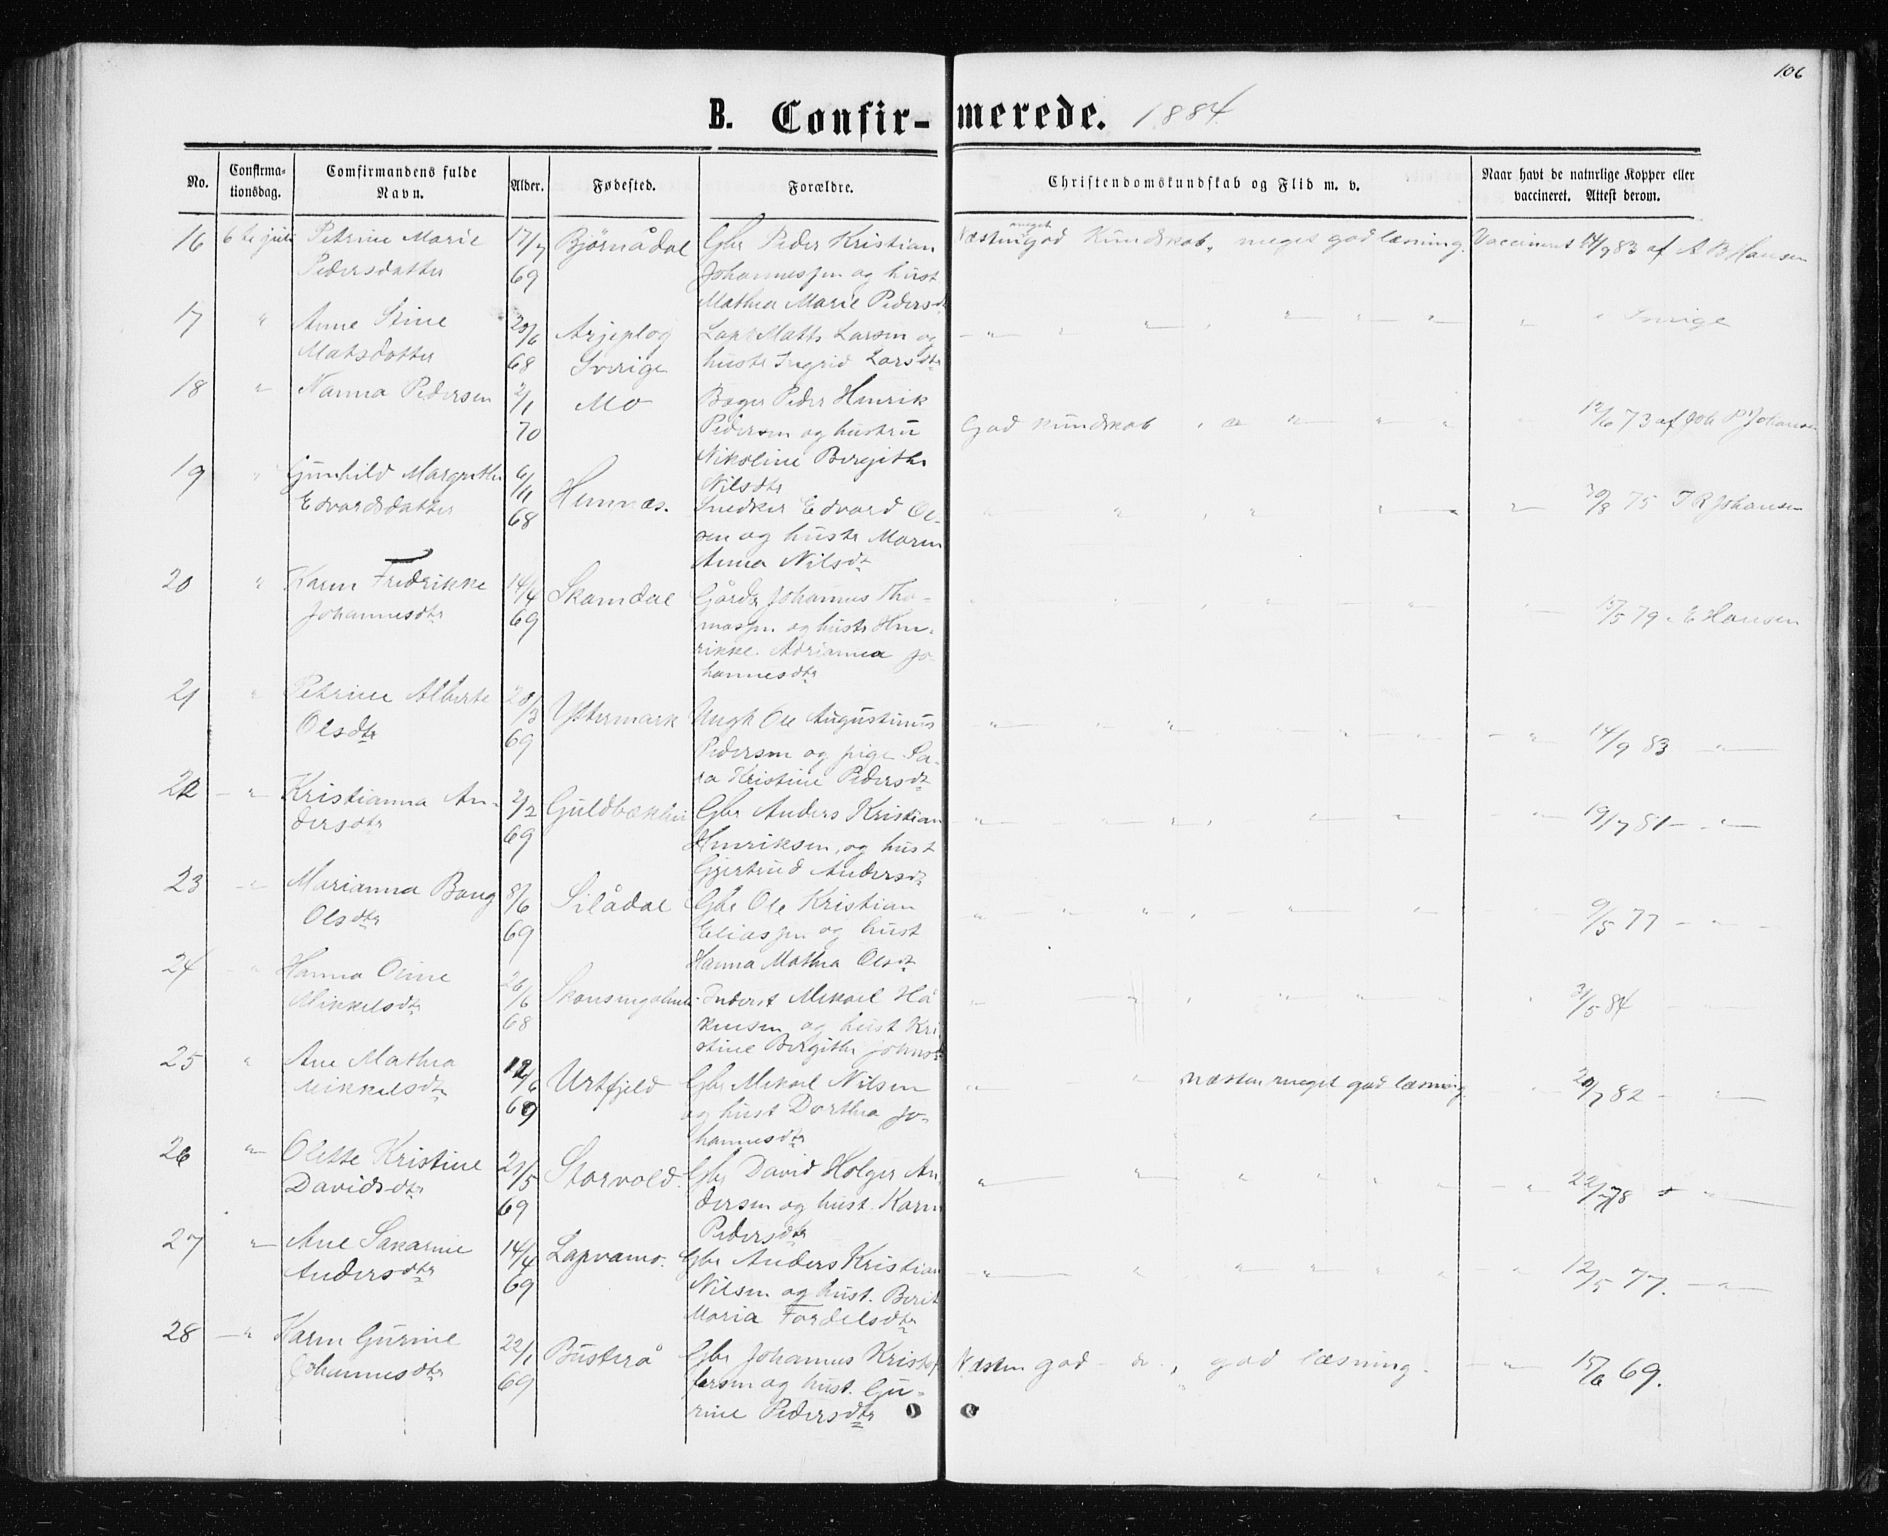 106
B. Confirmerede. 1884.
No. Confirmationsdag. Comfirmandens fulde Navn. Alder. Fødested. Forældre. Christendomskundskab og Flid m. v. Naar havt de naturlige Kopper eller vaccineret. Attest derom.
16 6te juli Petrine Marie 17/7 Bjørnådal Gbr Peder Kristian Næsten meget god Kundskab, meget god læsning. Vaccineret 14/9 83 af A B Hansen
Pedersdatter 69 Johannesen og hust
Mathea Marie Pedersdtr
17 " Anne Stine 20/6 Arjeplog Lap Matts Larsen og " " Sverige
Matsdatter 68 Sverige hustr Ingrid Larsdtr
18 " Nanna Pedersen 2/1 Mo Bager Peder Henrik
70 Pedersen og hustru God kundskab 12/6 73 af Joh P Johansen
Nikoline Birgithe
Nilsdtr
19 " Gunhild Margrethe 6/11 Hemnæs. Snedker Edvard Ol- 30/8 75 J R Johansen
Edvardsdatter 68 sen og hustr Maren
Anna Nilsdtr
20 " Karen Fredrikke 14/4 Skamdal Gårdbr Johannes Tho- 15/5 79 E Hansen
Johannesdtr 69 massen og hustr Hen-
rikke Adrianna Jo-
hannesdtr
21 " Petrine Alberte 20/3 Yttermark Ungk Ole Augustinus 14/9 83 "
Olsdtr 69 Pedersen og pige Sa-
ra Kristine Pedersdtr
22 " Kristianna An- 2/2 Guldbækhei Gbr Anders Kristian 19/7 81 "
dersdtr 69 Henriksen, og hust
Gjertrud Andersdtr
23 " Marianna Bang 8/6 Silådal Gbr Ole Kristian 9/5 77 "
Olsdtr 69 Eliassen og hust
Hanna Mathea Olsdtr
24 " Hanna Oline 26/6 Inderst Mikael Hå- 31/5 84
Mikkelsdtr 68 kensen og hust Kri-
stine Birgithe Johnsdtr
25 " Ane Mathea 12/6 Urtfjeld Gbr Mikael Nilsen " " næsten meget god læsning. 20/7 82 "
Mikkelsdtr 69 og hust Dorthea Jo-
hannesdtr
26 " Olette Kristine 21/5 Storvold. Gbr David Holger An- 78 "
Davidsdtr 69 dersen og hust. Karen
Pedersdtr
27 " Ane Sakarine 14/4 Lapvamo. Gbr Anders Kristian 12/5 77. "
Andersdtr 69 Nilsen og hust. Berit
Maria Fordelsdtr
28 " Karen Gurine 22/1 Busterå Gbr Johannes Kristof- Næsten god do, god læsning. " 15/6 69.
Johannesdtr 69 fersen og hust. Gu-
rine Pedersdtr